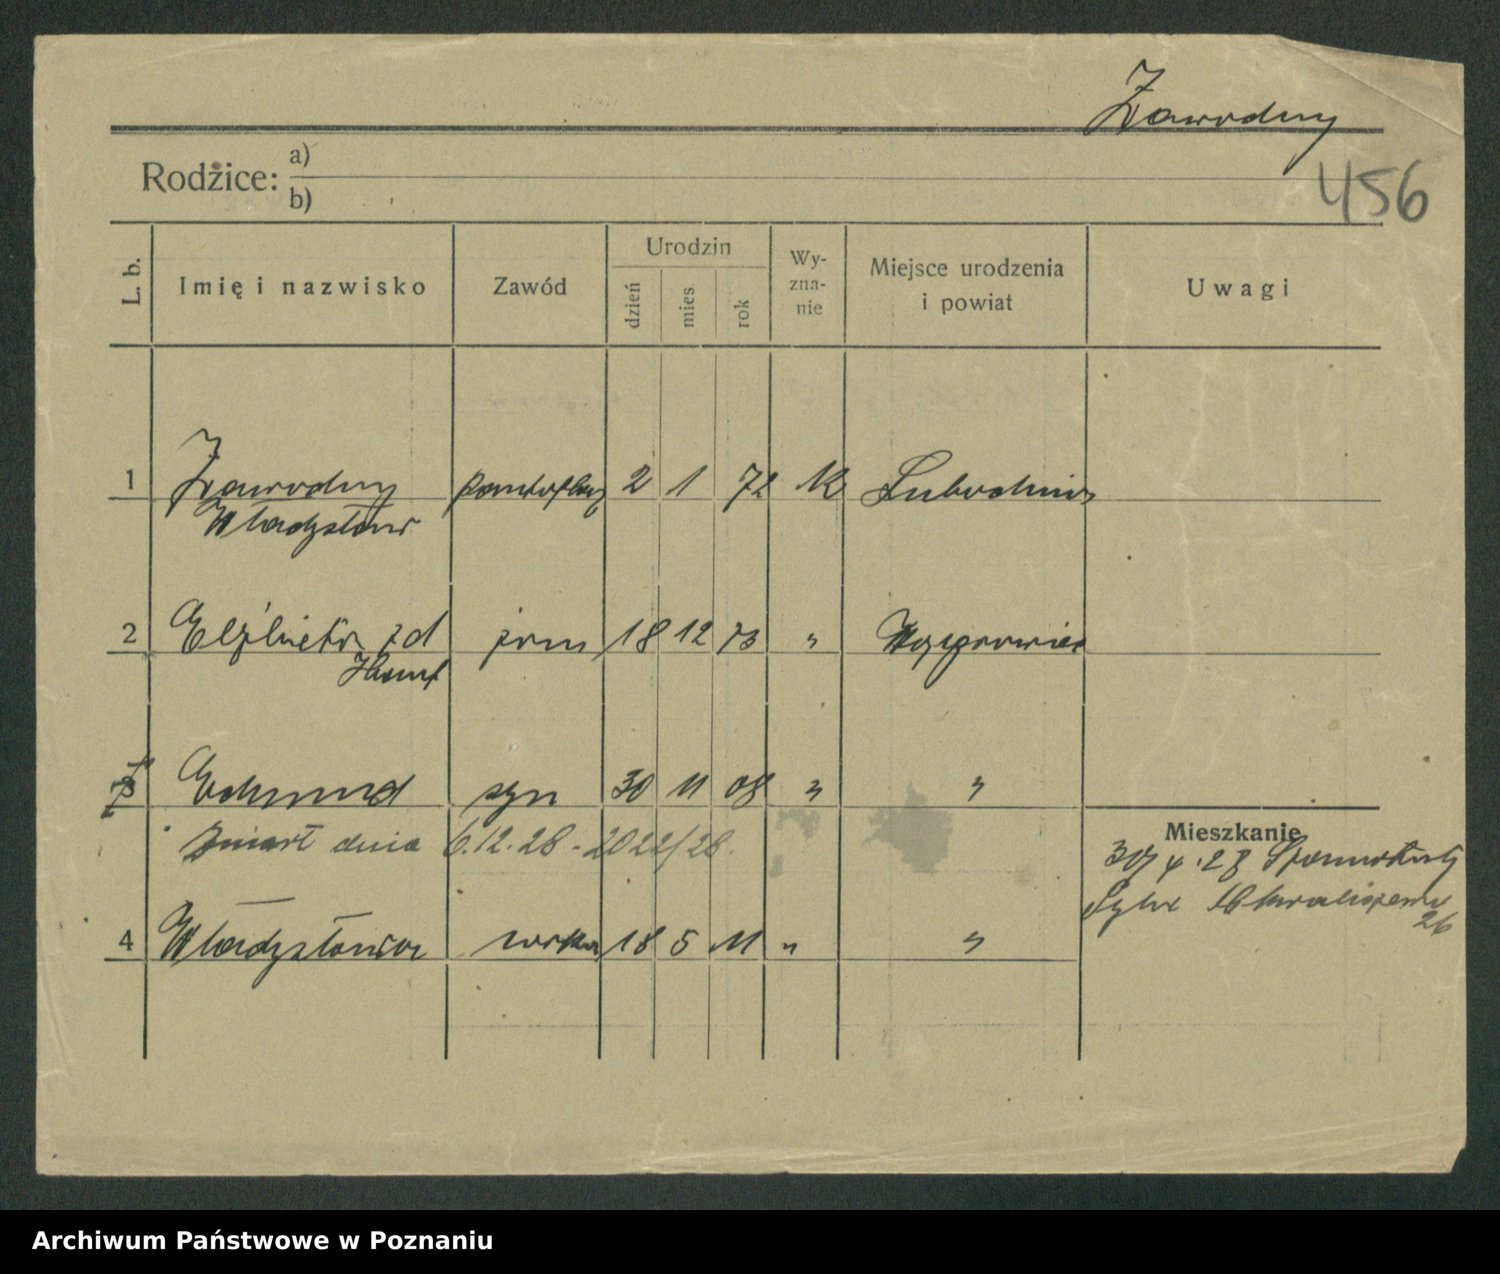 Zawodny
456
Rodzice: a)
b)
L. b. Imię i nazwisko Zawód Urodzin dzień mies. rok Wy-zna-nie Miejsce urodzenia i powiat Uwagi
1 Zawodny 2 1 72 K
Władysław
2 Elżbieta zd żona 18 12 73 "
3 Edmund syn 30 11 08 " "
zmarł dnia 6.12.28 - 2022/28.
Mieszkanie
30/4.28
26
4 Władysława córka 18 5 11 " "
Archiwum Państwowe w Poznaniu